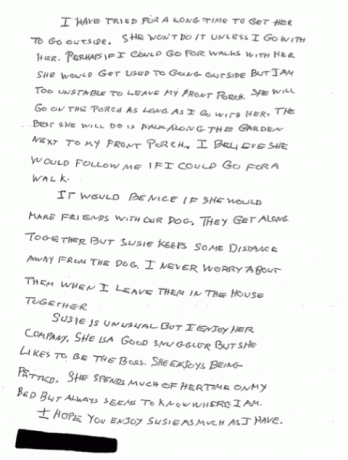 I HAVE TRIED FOR A LONG TIME TO GET HER
TO GO OUTSIDE. SHE WON'T DO IT UNLESS I GO WITH
HER. PERHAPS IF I COULD GO FOR WALKS WITH HER
SHE WOULD GET USED TO GOING OUTSIDE BUT I AM
TOO UNSTABLE TO LEAVE MY FRONT PORCH. SHE WILL
GO ON THE PORCH AS LONG AS I GO WITH HER. THE
BEST SHE WILL DO IS WALK ALONG THE GARDEN
NEXT TO MY FRONT PORCH. I BELIEVE SHE
WOULD FOLLOW ME IF I COULD GO FOR A
WALK.
IT WOULD BE NICE IF SHE WOULD
MAKE FRIENDS WITH OUR DOG. THEY GET ALONG
TOGETHER BUT SUSIE KEEPS SOME DISTANCE
AWAY FROM THE DOG. I NEVER WORRY ABOUT
THEM WHEN I LEAVE THEM IN THE HOUSE
TOGETHER
SUSIE IS UNUSUAL BUT I ENJOY HER
COMPANY. SHE IS A GOOD SNUGGLER BUT SHE
LIKES TO BE THE BOSS. SHE ENJOYS BEING
PETTED. SHE SPENDS MUCH OF HER TIME ON MY
BED BUT ALWAYS SEEMS TO KNOW WHERE I AM.
I HOPE YOU ENJOY SUSIE AS MUCH AS I HAVE.